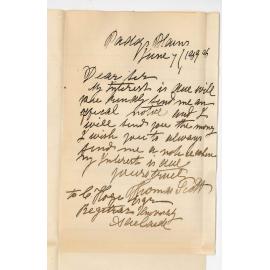 Paddys Plains
June 7/1909
Dear Sir
My Interest is due will
you kindly send me an
offical notice and I
will send you the money
I wish you to always
send me a note when
my Interest is due
yours truly
Thomas Scott
to C Hoge Esqr
Registrar University
Adelaide